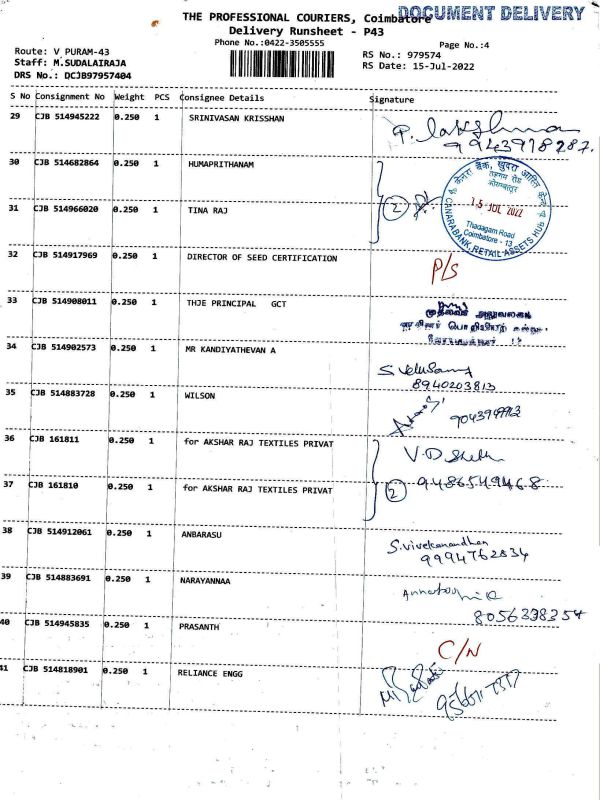 THE PROFESSIONAL COURIERS, Coimbatore
DOCUMENT DELIVERY
Delivery Runsheet - P43
Phone No.:0422-3505555
Page No.:4
Route: V PURAM-43
RS No.: 979574
Staff: M.SUDALAIRAJA
RS Date: 15-Jul-2022
DRS No.: DCJB97957404
S No Consignment No Weight PCS Consignee Details Signature
29 CJB 514945222 0.250 1 SRINIVASAN KRISSHAN P. Lakshman
9943978287.
30 CJB 514682864 0.250 1 HUMAPRITHANAM
केनरा बैंक, खुदरा आस्ति केन्द्र
तडागम रोड
कोयम्बत्तूर
15 JUL 2022
Thadagam Road
Coimbatore - 13
CANARABANK, RETAIL ASSETS HUB
31 CJB 514966020 0.250 1 TINA RAJ 2
32 CJB 514917969 0.250 1 DIRECTOR OF SEED CERTIFICATION P/S
33 CJB 514908011 0.250 1 THJE PRINCIPAL GCT
முதல்வர் அலுவலகம்
34 CJB 514902573 0.250 1 MR KANDIYATHEVAN A S Velusamy
8940203813
35 CJB 514883728 0.250 1 WILSON
36 CJB 161811 0.250 1 for AKSHAR RAJ TEXTILES PRIVAT V.D Sheth
37 CJB 161810 0.250 1 for AKSHAR RAJ TEXTILES PRIVAT 2 9486549468
38 CJB 514912061 0.250 1 ANBARASU S.vivekanandhan
9994762834
39 CJB 514883691 0.250 1 NARAYANNAA
8056338354
40 CJB 514945835 0.250 1 PRASANTH C/N
41 CJB 514818901 0.250 1 RELIANCE ENGG